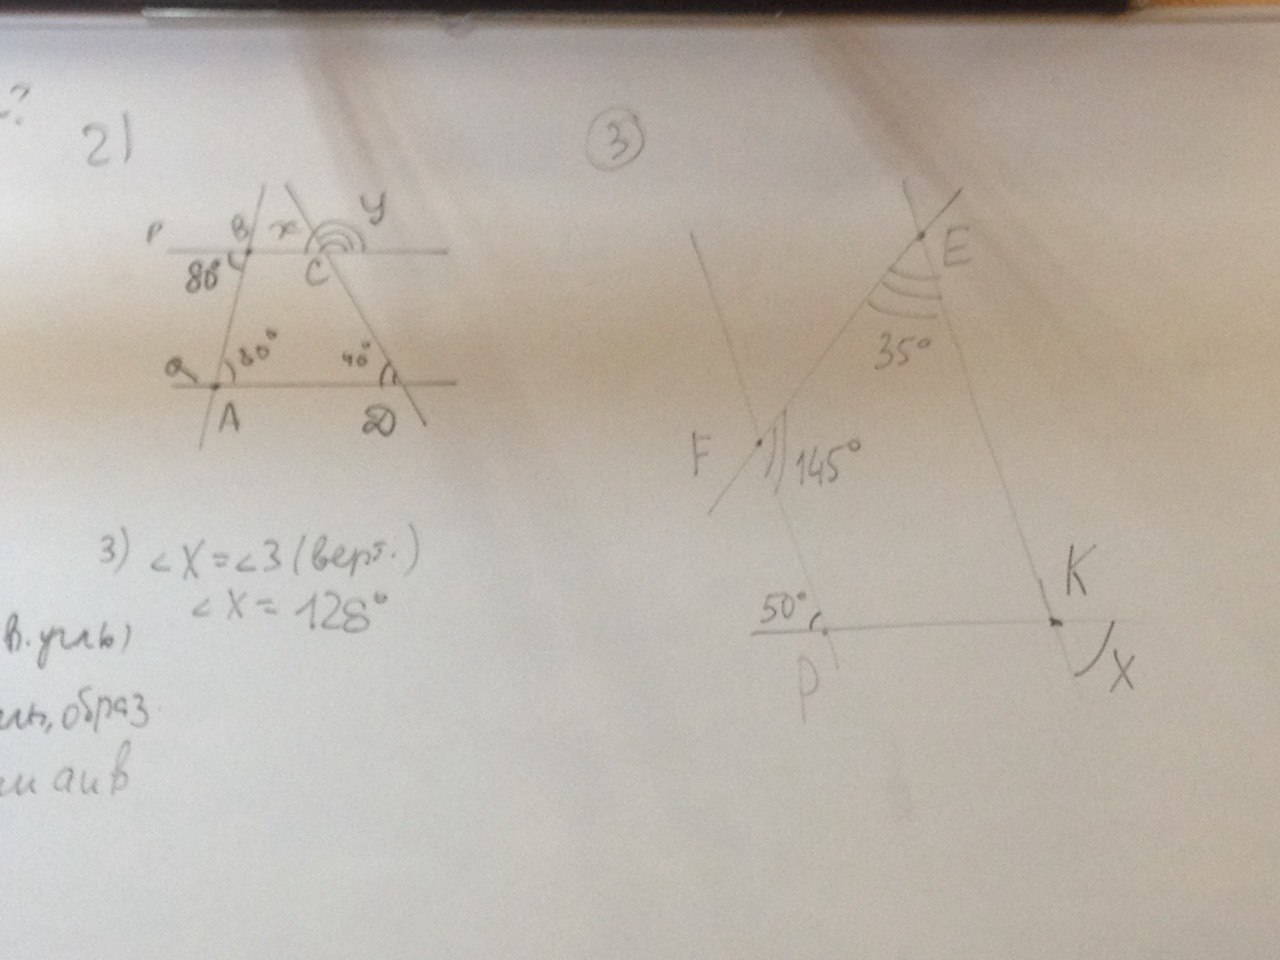 -?
2)
3
P
B
x
y
80°
C
Q
80°
40°
A
D
E
35°
F
145°
3) ∠X=∠3 (верт.)
∠X= 128°
50°
P
K
X
в. углы)
образ
и a и b